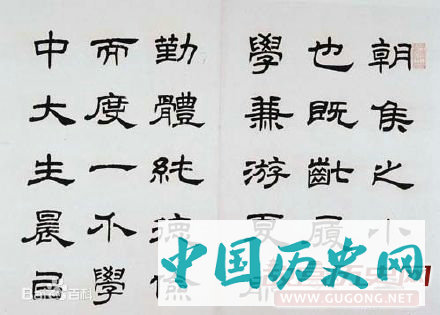 朝侯之小
也既齔
學兼游夏
勤體純德
而度一不學
中大生晨
中国历史网
WWW.GUGONG.NET
Baidu百科